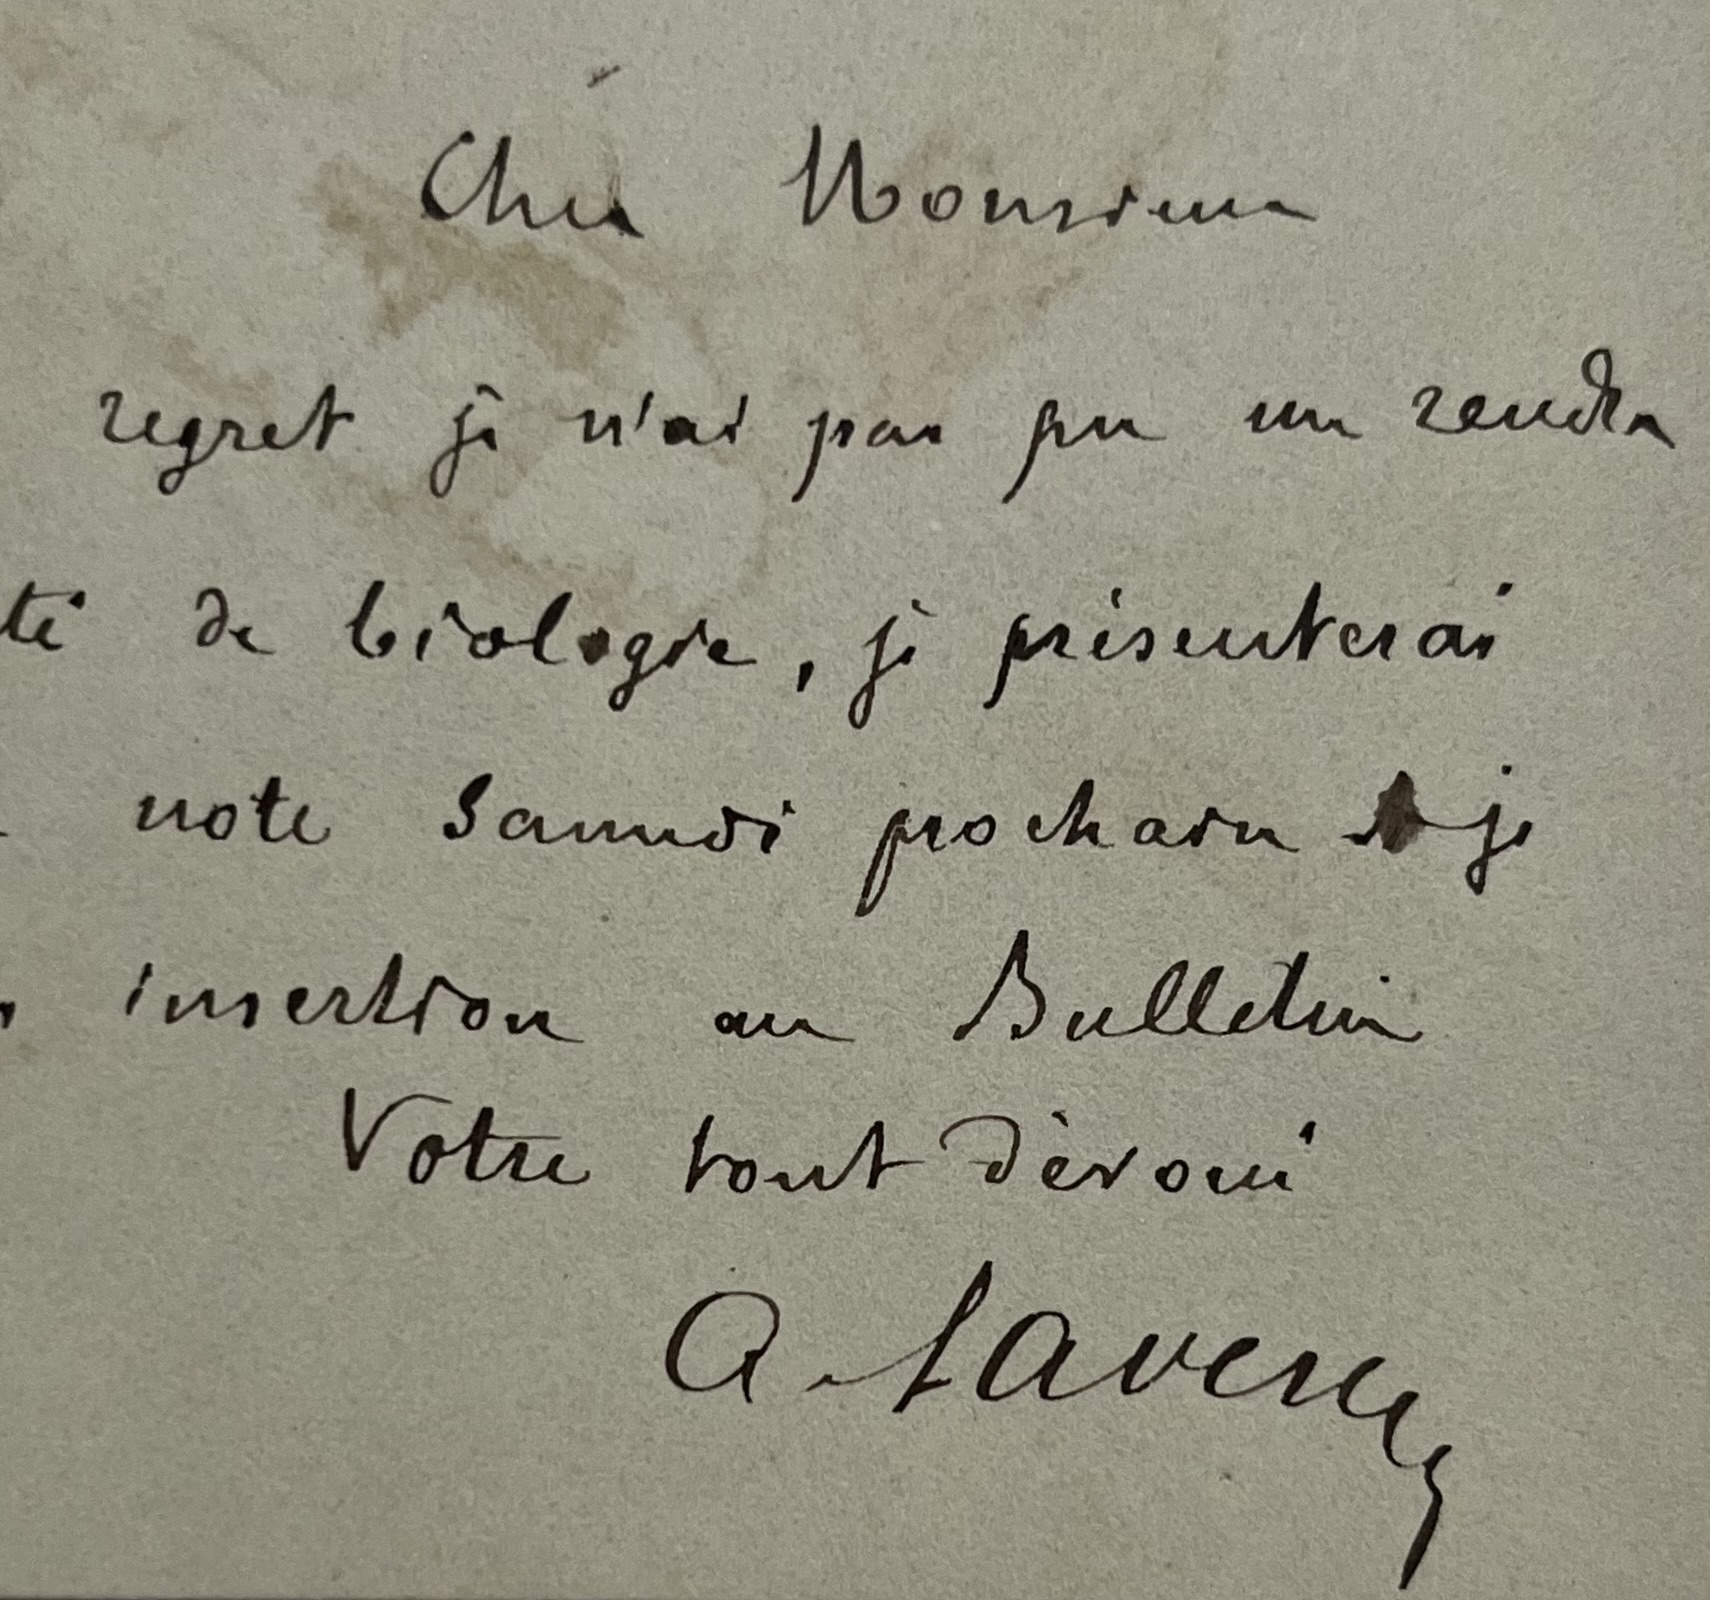 Cher Monsieur
regret je n'ai pas pu me rendre
té de biologie, je présenterai
note Samedi prochain je
insertion au Bulletin
Votre tout dévoué
A. Laveran